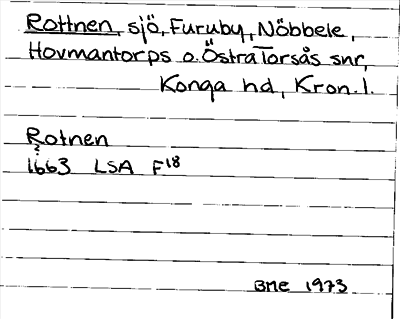 Rottnen, sjö, Furuby, Nöbbele,
Hovmantorps o. Östra Torsås snr,
Konga hd, Kron. l.
Rotnen
1663 LSA F18
BME 1973